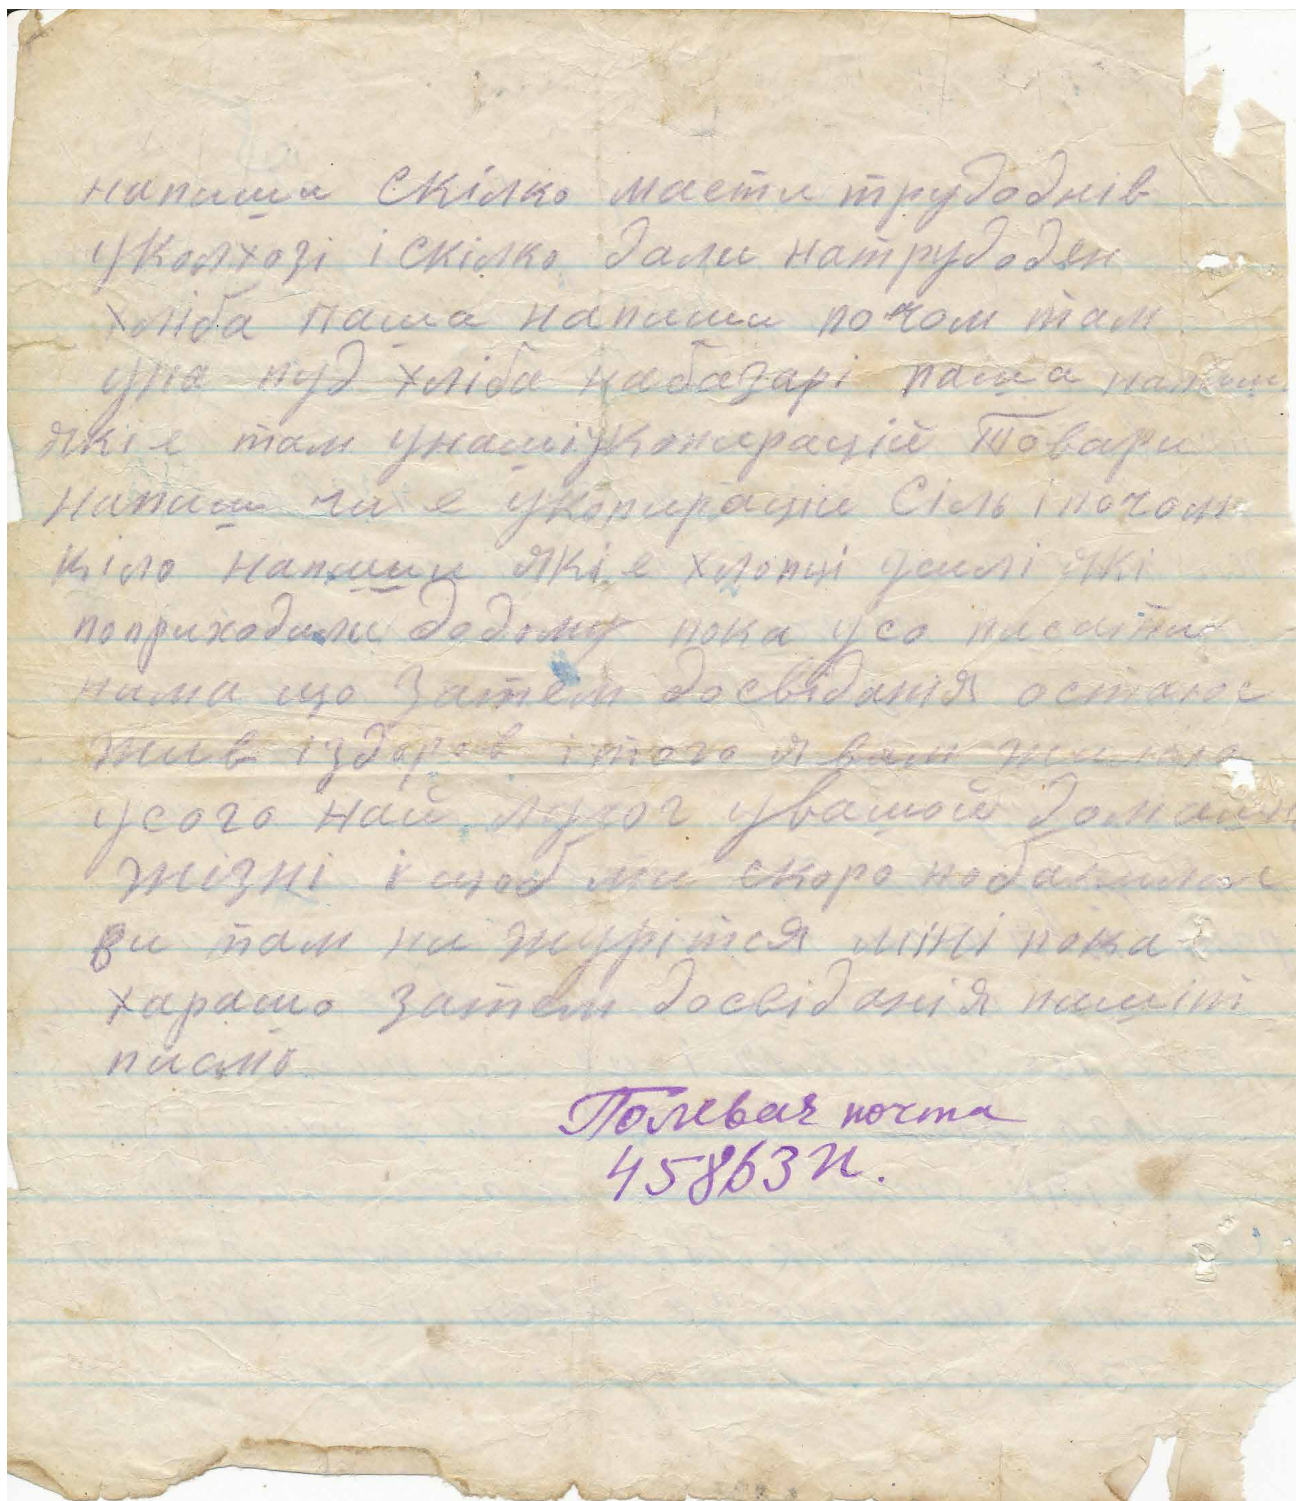 напиши скілко маєти трудоднів
уколхозі і скілко дали натрудоден
хліба паша напиши почом там
уна пуд хліба набазарі паша напиши
які е там унашіукопирацій товари
напиши чи е укопирации сіль і почом
кіло напиши які е хлопці уселі які
поприходили додому пока усо писати
нима що затем досвіданія остаюс
жив i здоров i того я вам жилаю
усого най луcог увашой домашн
жізні і щоб ми скоро побачилис
ви там ни журітся міні пока
харашо затем досвіданія пишіт
писмо
Полевая почта
45863 И.